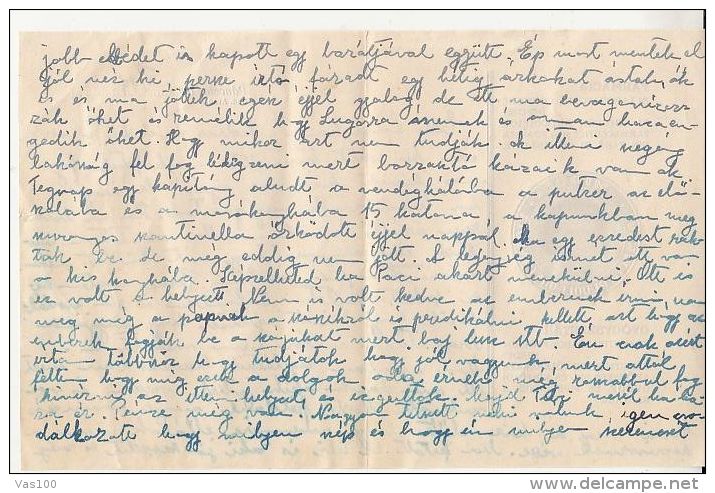 jobb ebédet is kapott egy barátjával együtt. Ép most mentek el
jól néz ki persze irtó fáradt egy hétig árkokat ástak, ők
is és ma jöttek egész éjjel gyalog, de itt ma bevagonizoz
zák őket és remélik hogy Lugosra mennek és onnan hazaen
gedik őket. Hogy mikor azt nem tudják. Az itteni szegény
lakosság fel fog lélegzeni mert borzasztó házaik van
Tegnap egy kapitány aludt a vendéghálóba a putzer az elő
szobába és a mosókonyhába 15 katona, a kapunkban meg
szuronyos kantinella őrködött éjjel nappal. Ma egy ezredest rak
tak be de még eddig nem jött. A legénység ismet itt van
a kis konyhába. Képzelheted ha Paci akart menekülni, itt is
ez volt a helyzet. Nem is volt kedve az embernek irni,
meg még a papnak a szószékről is predikálni kellett azt hogy az
emberek fogják be a szájukat mert baj lesz stb. Én csak azért
irtam többször hogy tudjátok hogy jól vagyunk, mert attól
féltem hogy mig ezek a dolgok oda érnek, még rosszabbul fog
kinézni az itteni helyzet, és izgultok. Majd Tibi mesél ha ha
za ér. Pénze még van. Nagyon tetszett neki nálunk, igen cso
dálkozott hogy milyen szép és hogy én milyen szerencsét
Vas100
www.delcampe.net